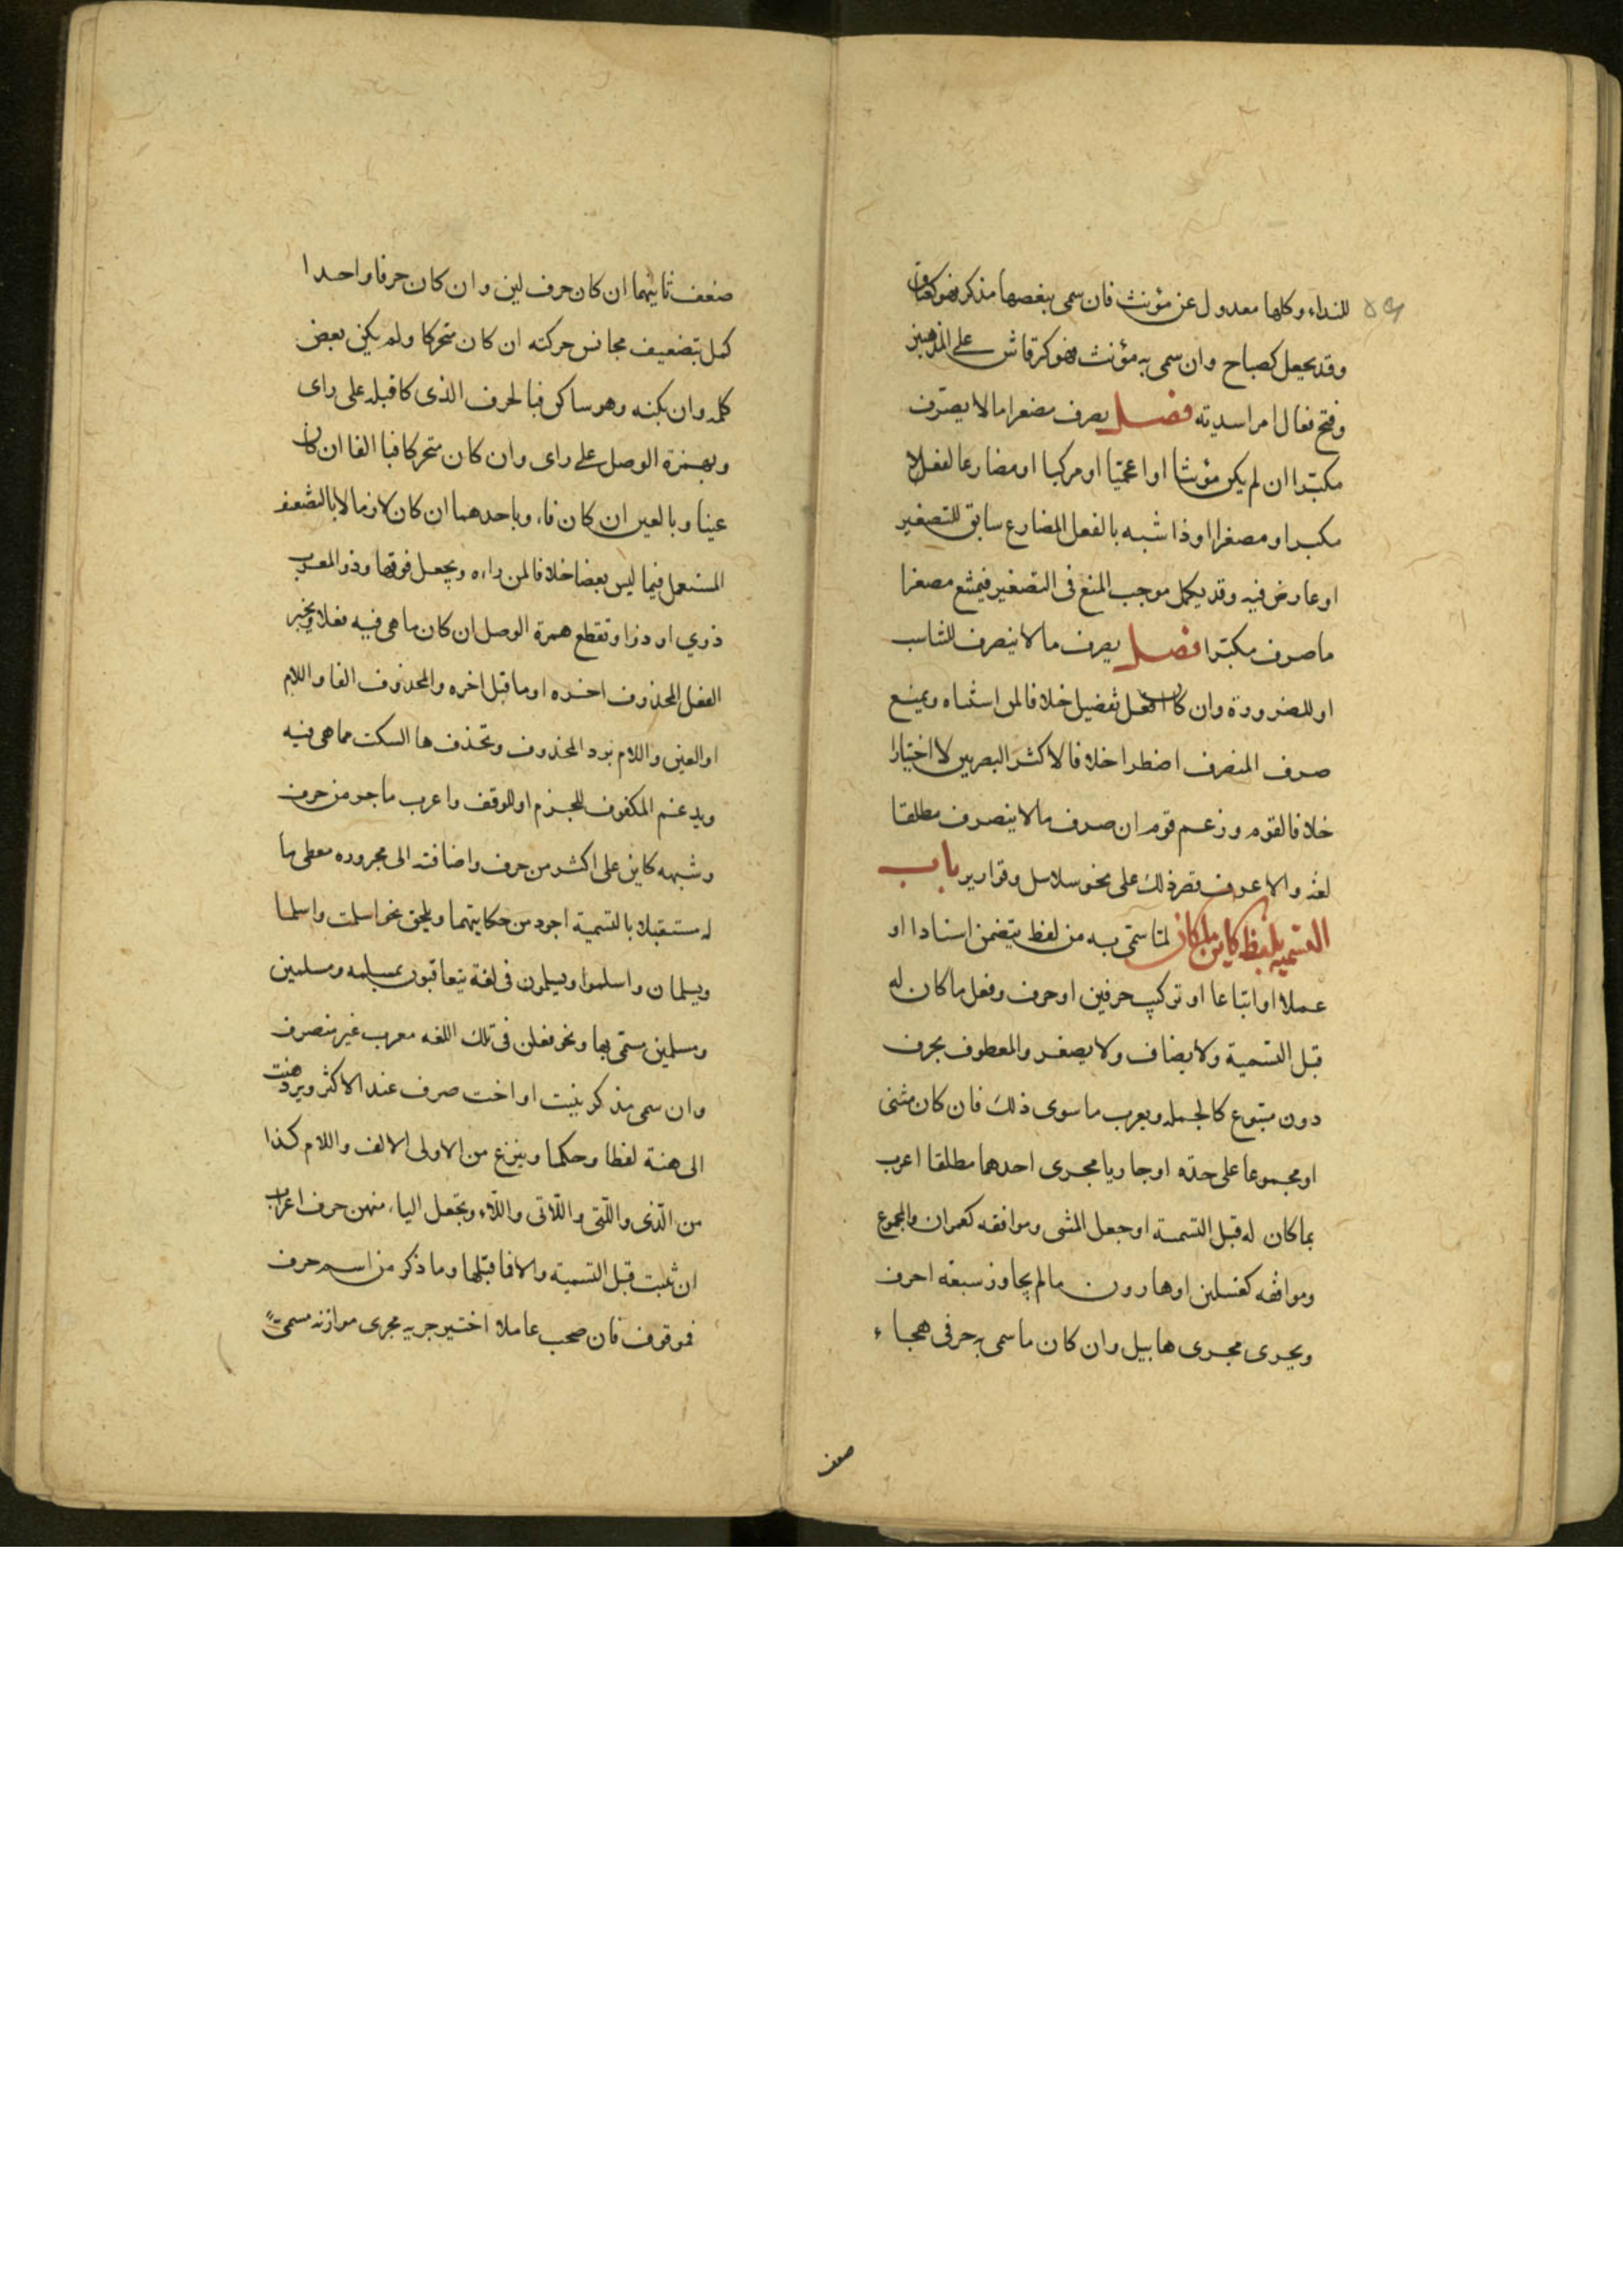 للنداء وكلها معدول عن مؤنث فان سمى ببعضها مذكر فهو كعناق
وقد يجعل كصباح وان سمى به مؤنث فهو كرقاش على المذهبين
وفتح فعال امرا اسدية فصل يصرف مصغرا ما لا يصرف
مكبرا ان لم يكن مؤنثا او اعجميا او مركبا او مضارعا لفعلا
مكبرا و مصغرا او ذا شبه بالفعل المضارع سابق للتصغير
او عارض فيه وقد يكمل موجب المنع فى التصغير فيمتنع مصغرا
ما صرف مكبرا فصل يصرف ما لا ينصرف للتناسب
او للضرورة وان كان افعل تفضيل خلافا لمن استثناه ويمنع
صرف المنصرف اضطرا خلافا لاكثر البصريين لا اختيارا
خلافا لقوم وزعم قوم ان صرف ما لا ينصرف مطلقا
لغة والا عرف قصر ذلك على نحو سلاسل وقوارير باب
التسمية بلفظ كاين ما كان لما سمى به من لفظ يتضمن اسنادا او
عملا او اتباعا او تركيب حرفين او حرف وفعل ما كان له
قبل التسمية ولا يضاف ولا يصغر والمعطوف بحرف
دون متبوع كالجمله ويعرب ما سوى ذلك فان كان مثنى
او مجموعا على حده او جاريا مجرى احدهما مطلقا اعرب
بما كان له قبل التسمية او جعل المثنى وموافقه كعمران والمجموع
وموافقه كغسلين او هارون ما لم يجاوز سبعة احرف
ويجرى مجرى هابيل وان كان ما سمى به حرفى هجاء
ضعف
ضعف ثانيهما ان كان حرف لين وان كان حرفا واحدا
كمل بتضعيف مجانس حركته ان كان متحركا ولم يكن بعض
كلمه وان يكنه وهو ساكن فبالحرف الذى كا قبله على راى
وبهمزة الوصل على راى وان كان متحركا فبا الفا ان كان
عينا وبالعين ان كان فاء وباحدهما ان كان لازما لا بالتضعيف
المستعمل فيما ليس بعضا خلافا لمن راه ويجعل فوقها وذو المعرب
ذوي او ذوا وتقطع همزة الوصل ان كان ما هى فيه فعلا ويجبر
الفعل المحذوف اخره او ما قبل اخره والمحذوف الفا واللام
او العين واللام برد المحذوف وتحذف ها السكت مما هى فيه
ويدغم المكفوف للجزم او للوقف واعرب ما جر من حرف
وشبهه كاين على اكثر من حرف واضافته الى مجروره معطى ما
له مستقبلا بالتسمية اجود من حكايتهما ويلحق نحو اسلمت واسلما
ويسلمان واسلموا ويسلمون فى لغة يتعاقبون بمسلمه ومسلمين
ومسلمين مسمى بها ونحو فعلن فى تلك اللغه معرب غير منصرف
وان سمى مذكر ببنت او اخت صرف عند الاكثر ويرد هنت
الى هنة لفظا وحكما وينزع من الاولى الالف واللام كذا
من الذى والتى واللاتى واللاء وتجعل الياء منهن حرف اعراب
ان ثبتت قبل التسمية والا فما قبلها وما ذكر من اسم حرف
فموقوف فان صحب عاملا اختير جريه مجرى موازنه مسمى به